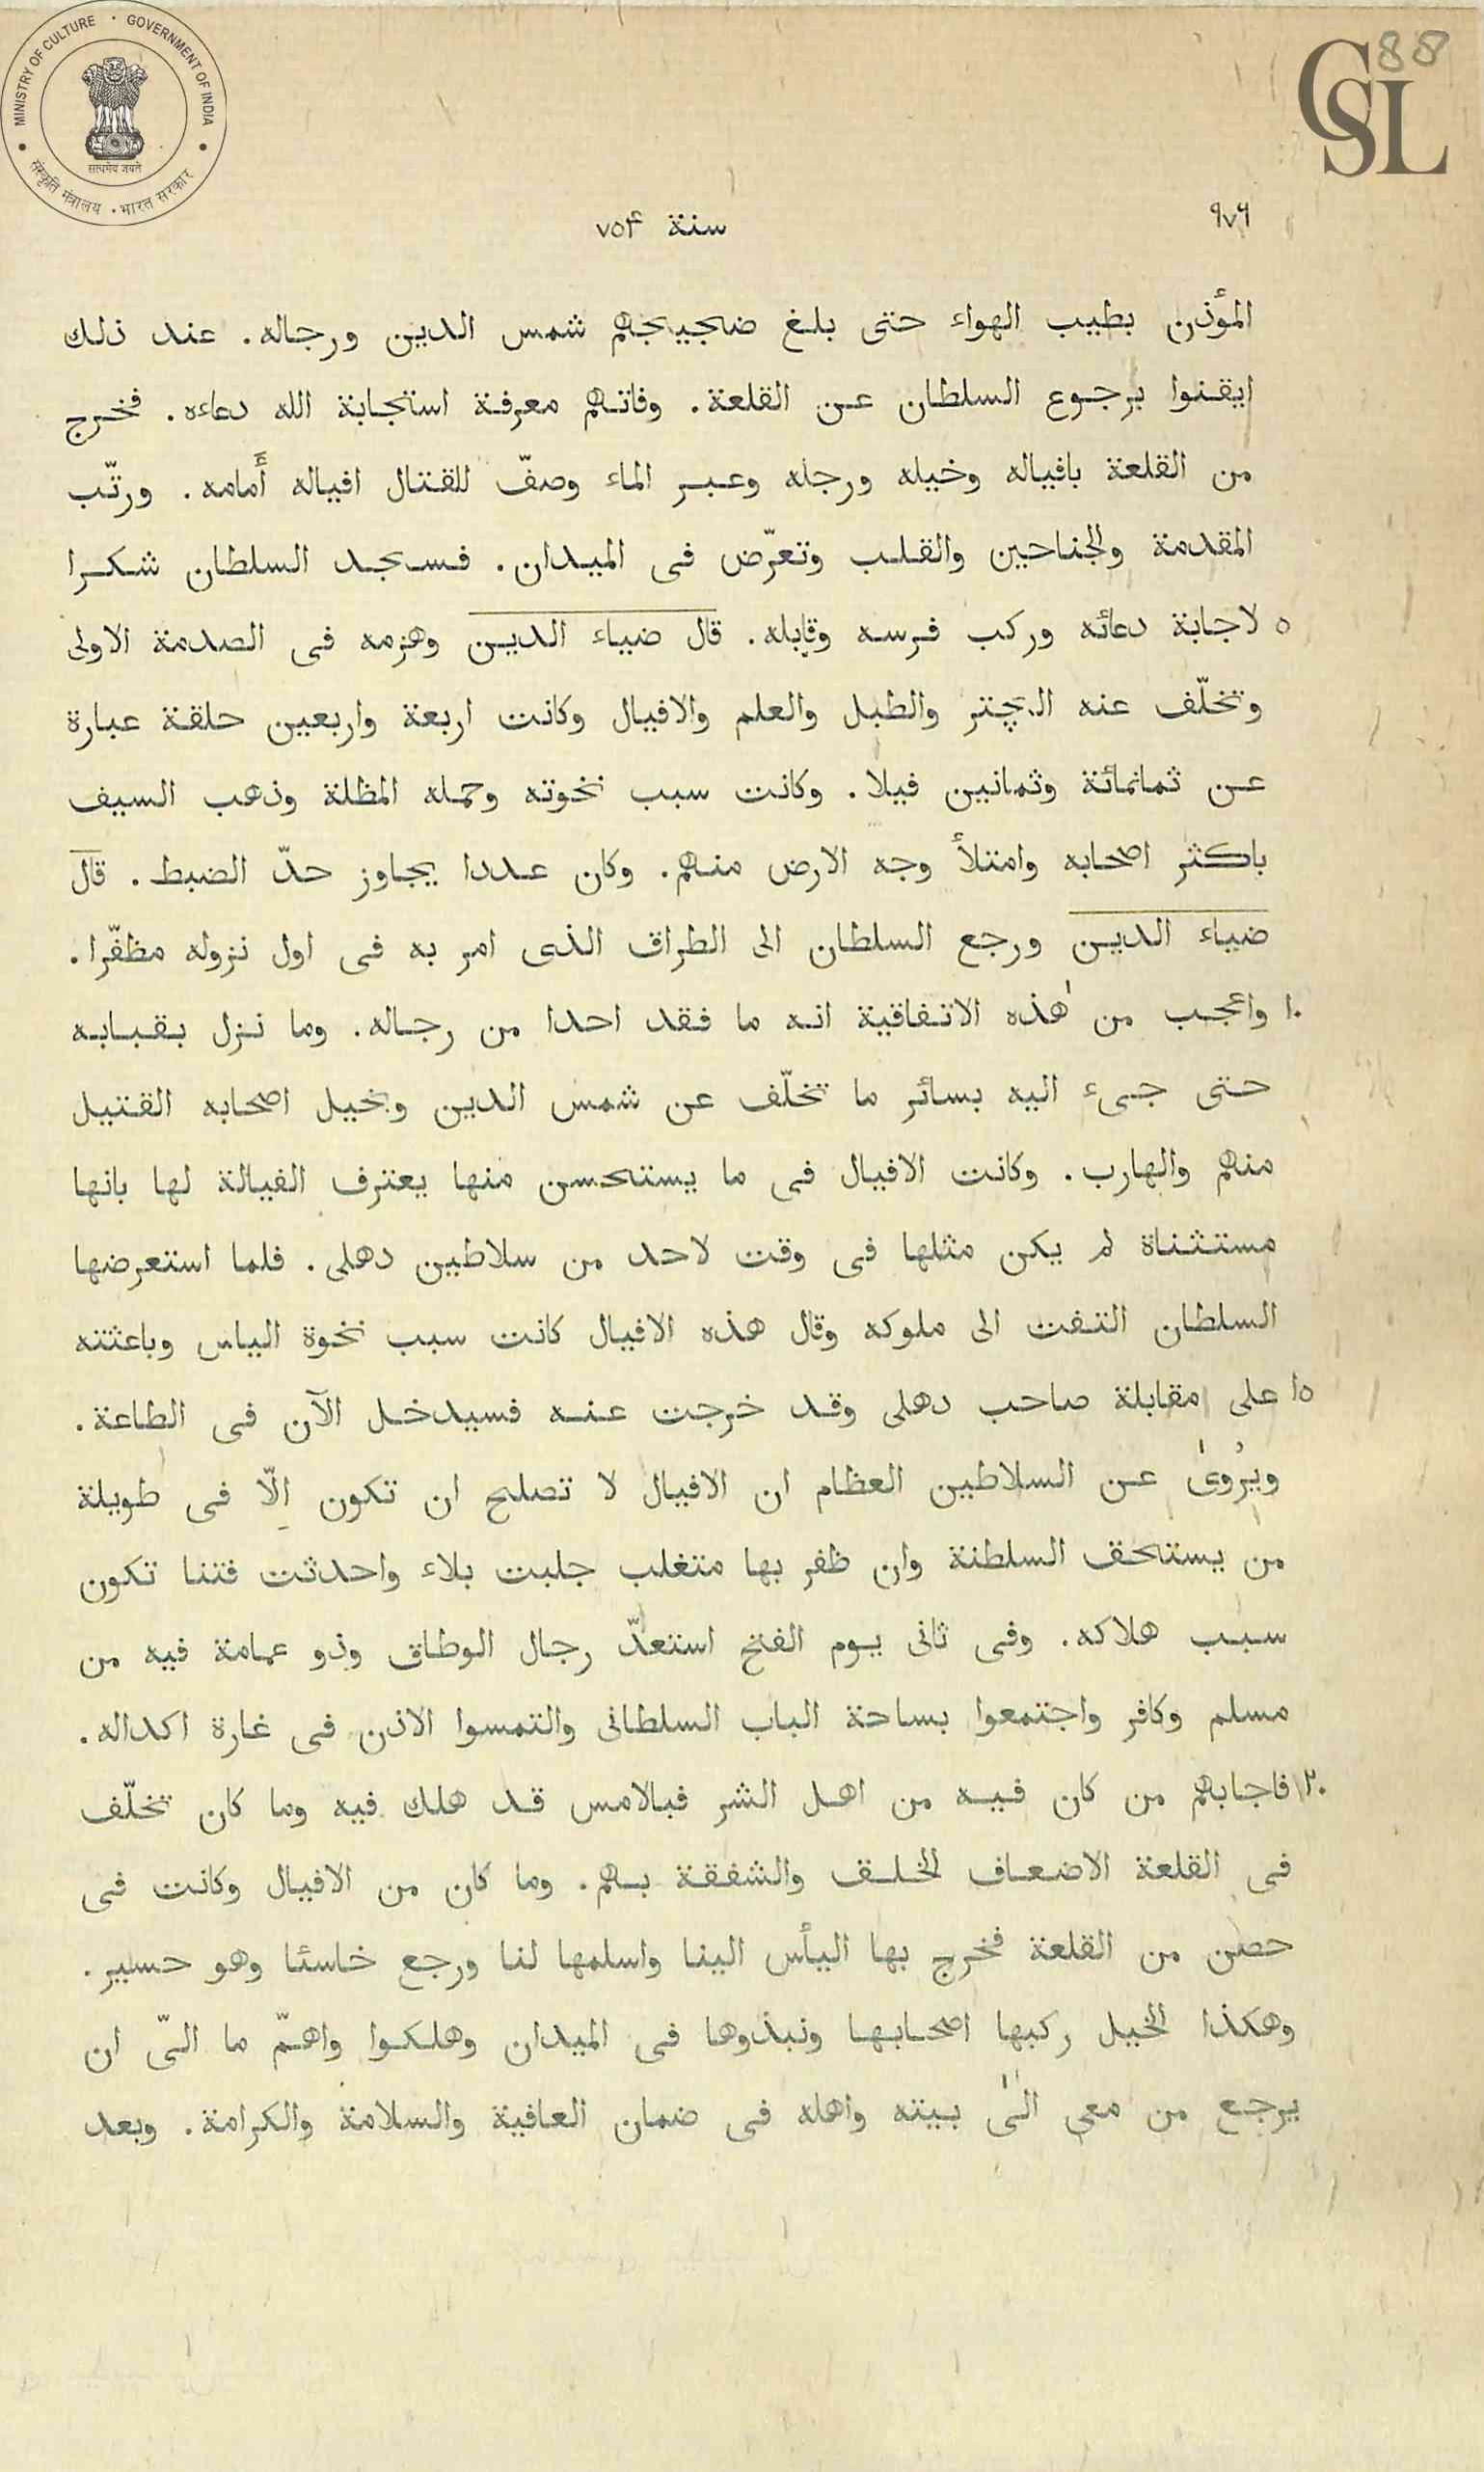 MINISTRY OF CULTURE · GOVERNMENT OF INDIA
सत्यमेव जयते
संस्कृति मंत्रालय · भारत सरकार
CSL
88
٩٧٦
سنة ٧٥۴
المؤذن بطيب الهواء حتى بلغ ضجيجهم شمس الدين ورجاله. عند ذلك
ايقنوا برجوع السلطان عن القلعة. وفاتهم معرفة استجابة الله دعاءه. فخرج
من القلعة بافياله وخيله ورجله وعبر الماء وصفّ للقتال افياله أمامه. ورتّب
المقدمة والجناحين والقلب وتعرّض فى الميدان. فسجد السلطان شكرا
٥ لاجابة دعائه وركب فرسه وقابله. قال ضياء الدين وهزمه فى الصدمة الاولى
وتخلّف عنه الچتر والطبل والعلم والافيال وكانت اربعة واربعين حلقة عبارة
عن ثمانمائة وثمانين فيلا. وكانت سبب نخوته وحمله المظلة وذهب السيف
باكثر اصحابه وامتلأ وجه الارض منهم. وكان عددا يجاوز حدّ الضبط. قال
ضياء الدين ورجع السلطان الى الطراق الذى امر به فى اول نزوله مظفّرا.
١٠ واعجب من هذه الاتفاقية انه ما فقد احدا من رجاله. وما نزل بقبابه
حتى جىء اليه بسائر ما تخلّف عن شمس الدين وبخيل اصحابه القتيل
منهم والهارب. وكانت الافيال فى ما يستحسن منها يعترف الفيالة لها بانها
مستثناة لم يكن مثلها فى وقت لاحد من سلاطين دهلى. فلما استعرضها
السلطان التفت الى ملوكه وقال هذه الافيال كانت سبب نخوة الياس وباعثته
١٥ على مقابلة صاحب دهلى وقد خرجت عنه فسيدخل الآن فى الطاعة.
ويُروىٰ عن السلاطين العظام ان الافيال لا تصلح ان تكون إلّا فى طويلة
من يستحق السلطنة وان ظفر بها متغلب جلبت بلاء واحدثت فتنا تكون
سبب هلاكه. وفى ثانى يوم الفتح استعدّ رجال الوطاق وذو عمامة فيه من
مسلم وكافر واجتمعوا بساحة الباب السلطانى والتمسوا الاذن فى غارة اكداله.
٢٠ فاجابهم من كان فيه من اهل الشر فبالامس قد هلك فيه وما كان تخلّف
فى القلعة الاضعاف الخلق والشفقة بهم. وما كان من الافيال وكانت فى
حصن من القلعة فخرج بها اليأس الينا واسلمها لنا ورجع خاسئا وهو حسير.
وهكذا الخيل ركبها اصحابها ونبذوها فى الميدان وهلكوا واهمّ ما الىّ ان
يرجع من معى الىٰ بيته واهله فى ضمان العافية والسلامة والكرامة. وبعد